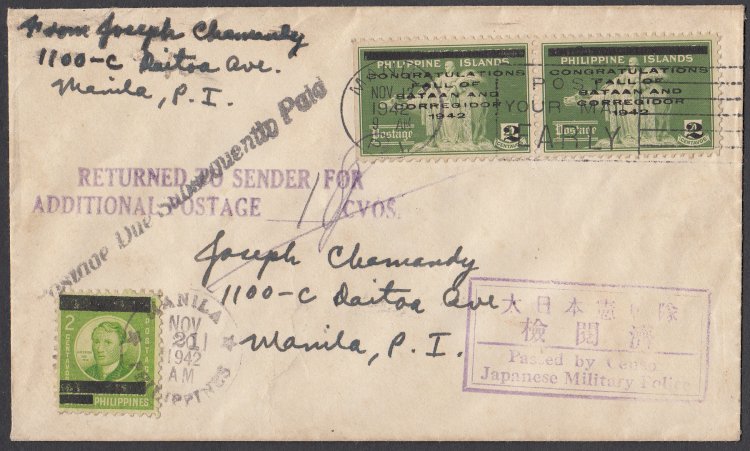 From Joseph Chamandy
1100-C Daitoa Ave.
Manila, P.I.
PHILIPPINE ISLANDS
CONGRATULATIONS
FALL OF
BATAAN AND
CORREGIDOR
1942
Postage
2
CENTAVOS
PHILIPPINE ISLANDS
CONGRATULATIONS
FALL OF
BATAAN AND
CORREGIDOR
1942
Postage
2
CENTAVOS
NOV
1942
YOUR MAIL
EARLY
Postage Due Subsequently Paid
RETURNED TO SENDER FOR
ADDITIONAL POSTAGE
CVOS.
Joseph Chamandy
1100-C Daitoa Ave
Manila, P.I.
大日本憲兵隊
檢閲済
Passed by Censor
Japanese Military Police
2
CENTAVOS
POSTAGE
PHILIPPINES
MANILA
NOV
1942
AM
PHILIPPINES